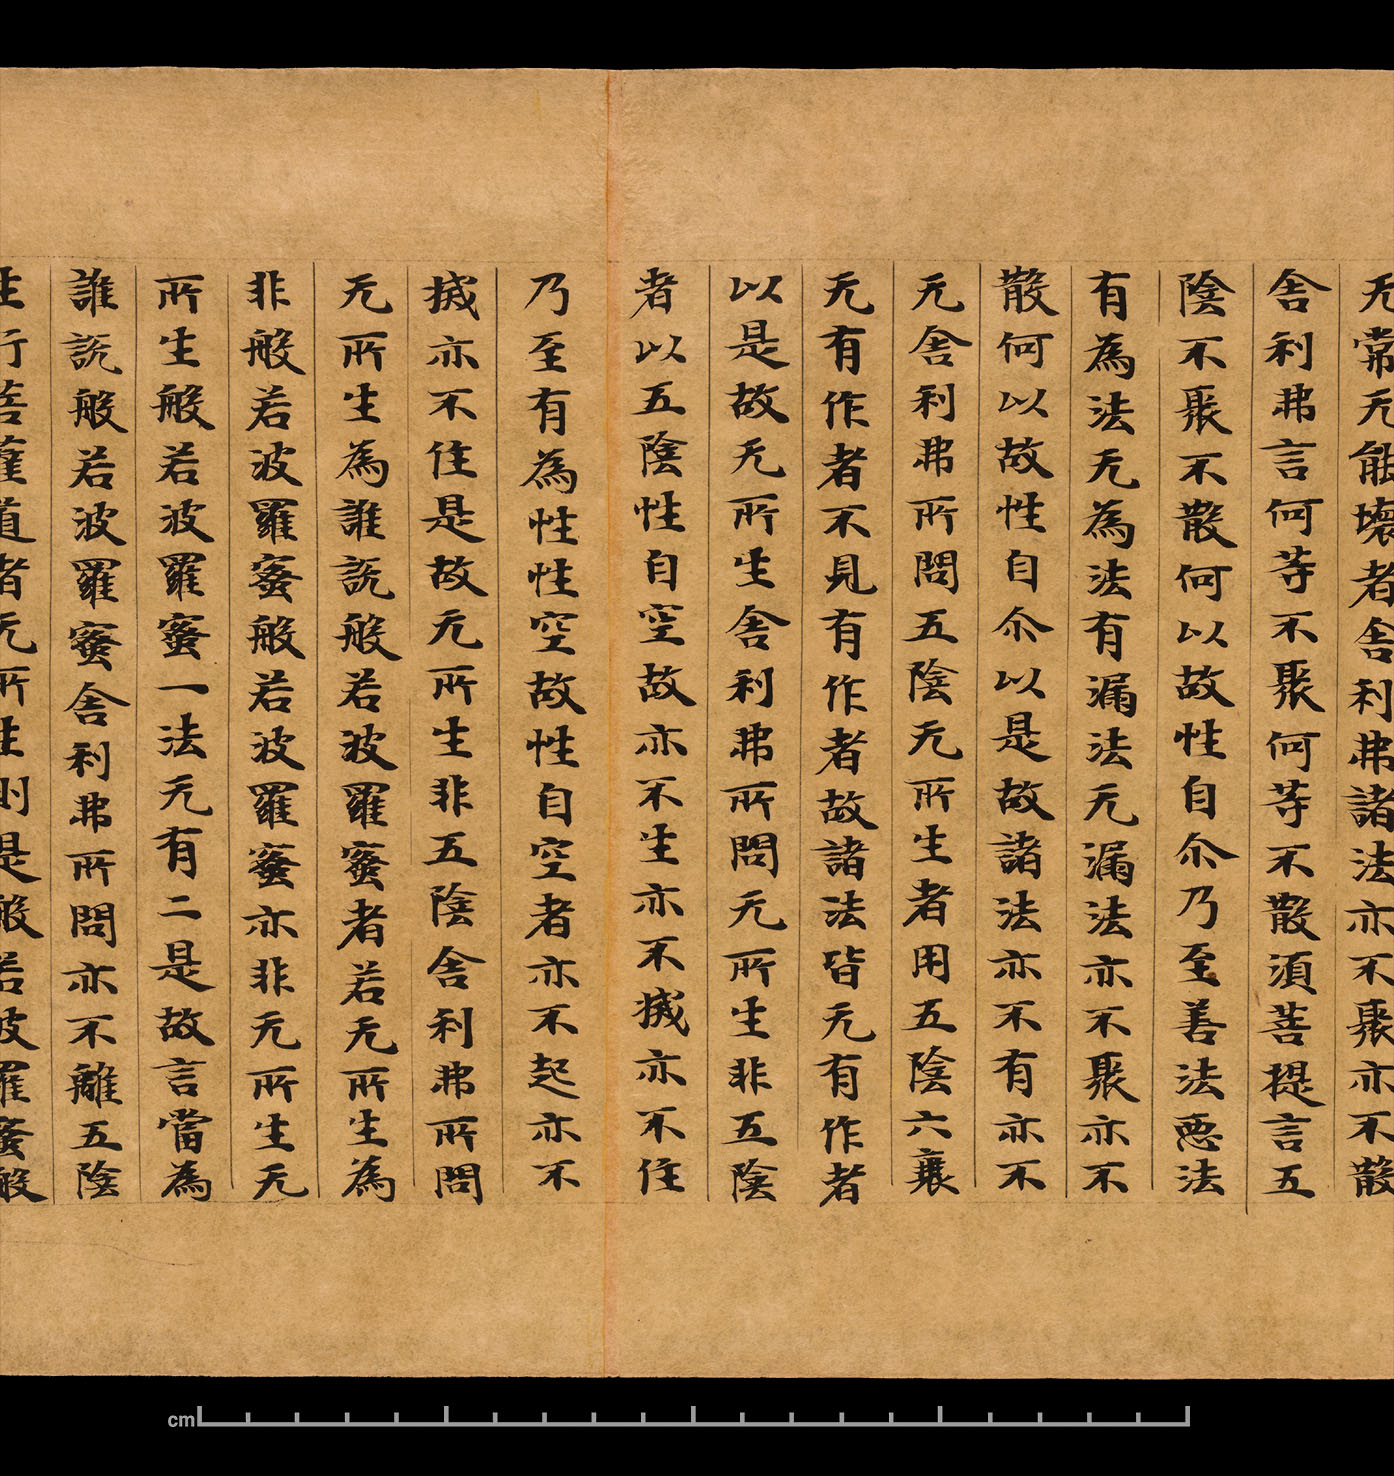 无常无能壞者舍利弗諸法亦不聚亦不散
舍利弗言何等不聚何等不散須菩提言五
陰不聚不散何以故性自尒乃至善法惡法
有為法无為法有漏法无漏法亦不聚亦不
散何以故性自尒以是故諸法亦不有亦不
无舍利弗所問五陰无所生者用五陰六衰
无有作者不見有作者故諸法皆无有作者
以是故无所生舍利弗所問无所生非五陰
者以五陰性自空故亦不生亦不滅亦不住
乃至有為性性空故性自空者亦不起亦不
滅亦不住是故无所生非五陰舍利弗所問
无所生為誰説般若波羅蜜者若无所生為
非般若波羅蜜般若波羅蜜亦非无所生无
所生般若波羅蜜一法无有二是故言當為
誰説般若波羅蜜舍利弗所問亦不離五陰
生行菩薩道者无所生則是般若波羅蜜般
cm